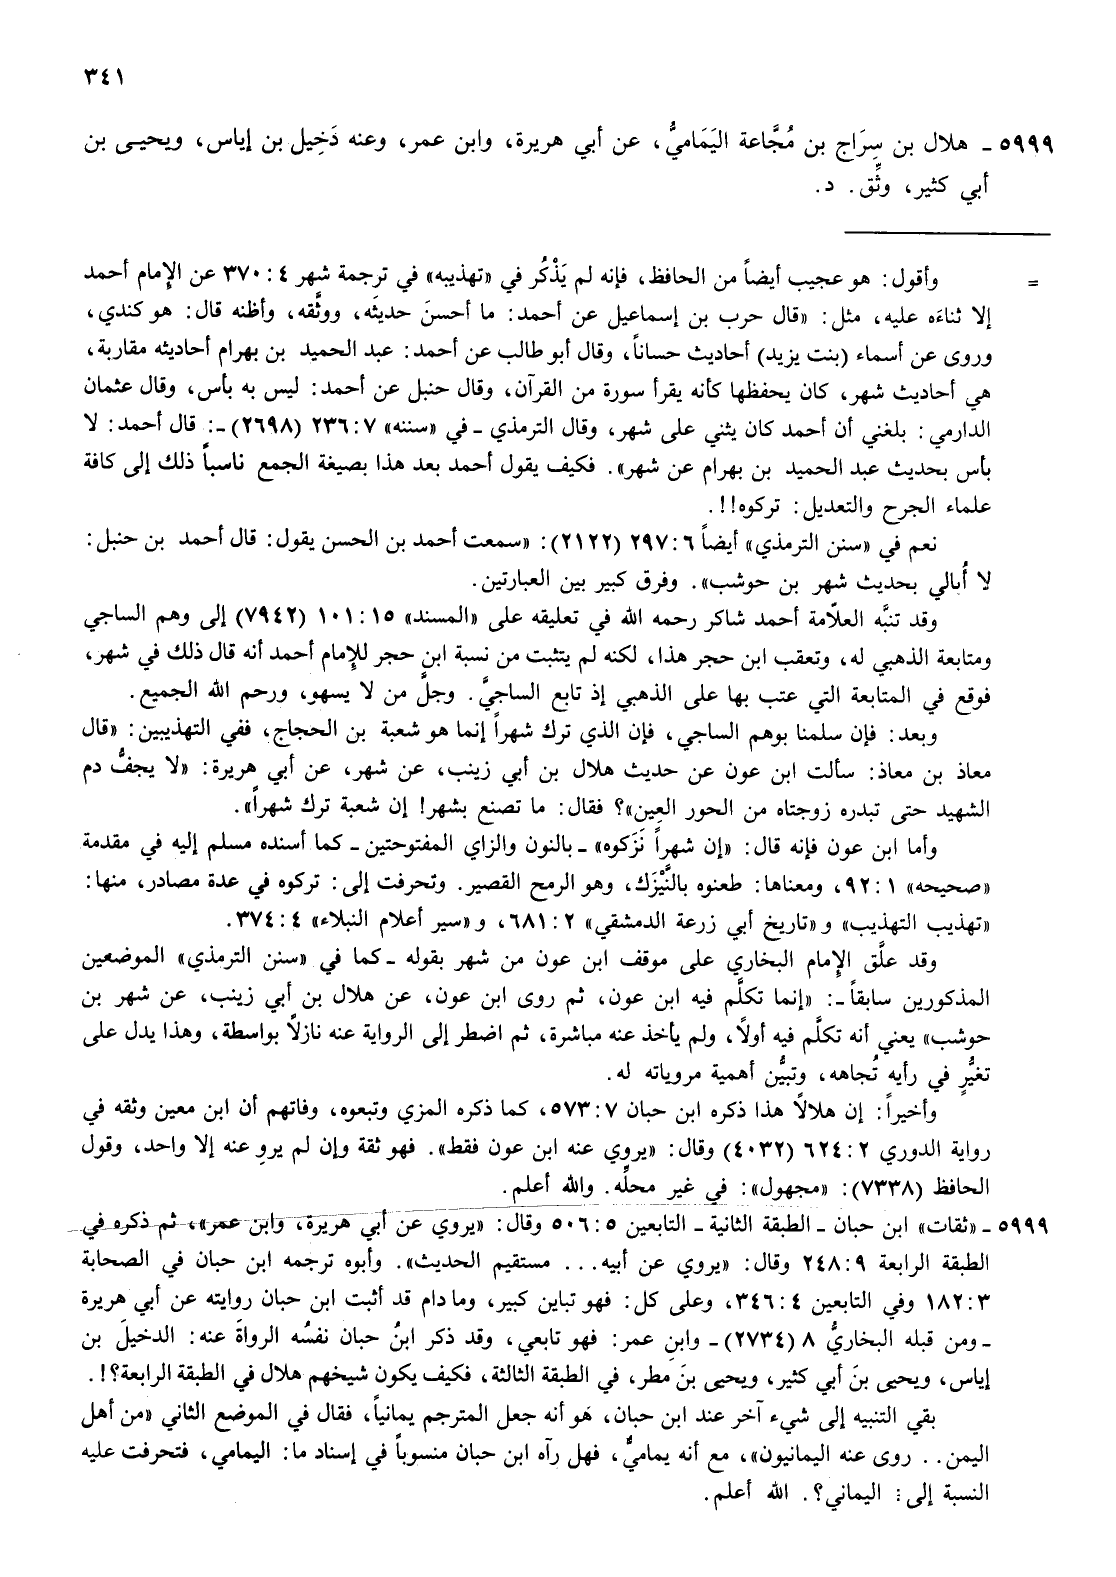 ٣٤١
٥٩٩٩ ـ هلال بن سِرَاج بن مُجَّاعة اليَمَاميُّ، عن أبي هريرة، وابن عمر، وعنه دَخِيل بن إياس، ويحيـى بن
أبي كثير، وثِّق. د.
= وأقول: هو عجيب أيضاً من الحافظ، فإنه لم يَذْكُر في «تهذيبه» في ترجمة شهر ٤: ٣٧٠ عن الإمام أحمد
إلا ثناءَه عليه، مثل: «قال حرب بن إسماعيل عن أحمد: ما أحسنَ حديثَه، ووثَّقه، وأظنه قال: هو كندي،
وروى عن أسماء (بنت يزيد) أحاديث حساناً، وقال أبو طالب عن أحمد: عبد الحميد بن بهرام أحاديثه مقاربة،
هي أحاديث شهر، كان يحفظها كأنه يقرأ سورة من القرآن، وقال حنبل عن أحمد: ليس به بأس، وقال عثمان
الدارمي: بلغني أن أحمد كان يثني على شهر، وقال الترمذي ـ في «سننه» ٧: ٢٣٦ (٢٦٩٨) ـ: قال أحمد: لا
بأس بحديث عبد الحميد بن بهرام عن شهر». فكيف يقول أحمد بعد هذا بصيغة الجمع ناسباً ذلك إلى كافة
علماء الجرح والتعديل: تركوه!!.
نعم في «سنن الترمذي» أيضاً ٦: ٢٩٧ (٢١٢٢): «سمعت أحمد بن الحسن يقول: قال أحمد بن حنبل:
لا أُبالي بحديث شهر بن حوشب». وفرق كبير بين العبارتين.
وقد تنبَّه العلاّمة أحمد شاكر رحمه الله في تعليقه على «المسند» ١٥: ١٠١ (٧٩٤٢) إلى وهم الساجي
ومتابعة الذهبي له، وتعقب ابن حجر هذا، لكنه لم يتثبت من نسبة ابن حجر للإمام أحمد أنه قال ذلك في شهر،
فوقع في المتابعة التي عتب بها على الذهبي إذ تابع الساجيَّ. وجلَّ من لا يسهو، ورحم الله الجميع.
وبعد: فإن سلمنا بوهم الساجي، فإن الذي ترك شهراً إنما هو شعبة بن الحجاج، ففي التهذيبين: «قال
معاذ بن معاذ: سألت ابن عون عن حديث هلال بن أبي زينب، عن شهر، عن أبي هريرة: «لا يجفُّ دم
الشهيد حتى تبدره زوجتاه من الحور العِين»؟ فقال: ما تصنع بشهر! إن شعبة ترك شهراً».
وأما ابن عون فإنه قال: «إن شهراً نَزَكوه» ـ بالنون والزاي المفتوحتين ـ كما أسنده مسلم إليه في مقدمة
«صحيحه» ١: ٩٢، ومعناها: طعنوه بالنَّيْزَك، وهو الرمح القصير. وتحرفت إلى: تركوه في عدة مصادر، منها:
«تهذيب التهذيب» و«تاريخ أبي زرعة الدمشقي» ٢: ٦٨١، و«سير أعلام النبلاء» ٤: ٣٧٤.
وقد علَّق الإمام البخاري على موقف ابن عون من شهر بقوله ـ كما في «سنن الترمذي» الموضعين
المذكورين سابقاً ـ: «إنما تكلَّم فيه ابن عون، ثم روى ابن عون، عن هلال بن أبي زينب، عن شهر بن
حوشب» يعني أنه تكلَّم فيه أولاً، ولم يأخذ عنه مباشرة، ثم اضطر إلى الرواية عنه نازلاً بواسطة، وهذا يدل على
تغيُّرٍ في رأيه تُجاهه، وتبيُّن أهمية مروياته له.
وأخيراً: إن هلالاً هذا ذكره ابن حبان ٧: ٥٧٣، كما ذكره المزي وتبعوه، وفاتهم أن ابن معين وثقه في
رواية الدوري ٢: ٦٢٤ (٤٠٣٢) وقال: «يروي عنه ابن عون فقط». فهو ثقة وإن لم يروِ عنه إلا واحد، وقول
الحافظ (٧٣٣٨): «مجهول»: في غير محلِّه. والله أعلم.
٥٩٩٩ ـ «ثقات» ابن حبان ـ الطبقة الثانية ـ التابعين ٥: ٥٠٦ وقال: «يروي عن أبي هريرة، وابن عمر»، ثم ذكره في
الطبقة الرابعة ٩: ٢٤٨ وقال: «يروي عن أبيه... مستقيم الحديث». وأبوه ترجمه ابن حبان في الصحابة
٣: ١٨٢ وفي التابعين ٤: ٣٤٦، وعلى كل: فهو تباين كبير، وما دام قد أثبت ابن حبان روايته عن أبي هريرة
ـ ومن قبله البخاريُّ ٨ (٢٧٣٤) ـ وابنِ عمر: فهو تابعي، وقد ذكر ابنُ حبان نفسُه الرواةَ عنه: الدخيلَ بن
إياس، ويحيى بنَ أبي كثير، ويحيى بنَ مطر، في الطبقة الثالثة، فكيف يكون شيخهم هلال في الطبقة الرابعة؟!.
بقي التنبيه إلى شيء آخر عند ابن حبان، هَو أنه جعل المترجم يمانياً، فقال في الموضع الثاني «من أهل
اليمن.. روى عنه اليمانيون»، مع أنه يماميٌّ، فهل رآه ابن حبان منسوباً في إسناد ما: اليمامي، فتحرفت عليه
النسبة إلى: اليماني؟. الله أعلم.